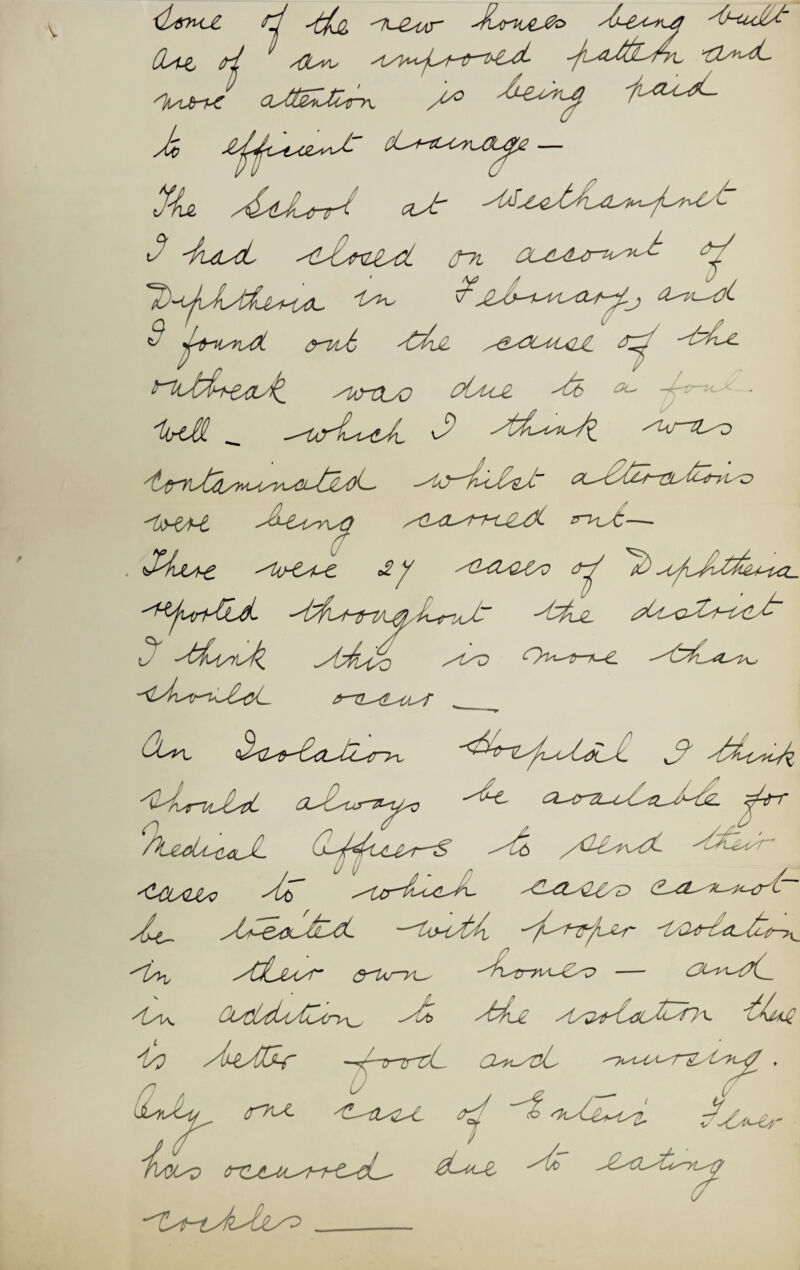 Some of the new houses being built
are of an improved pattern and
more attention is being paid
to efficient drainage —
The School at Westhampnet
I had closed on account of
Diphtheria in February, and
I found out the cause of the
outbreak was due to a foul.
well _ which I think was
contaminated whilst alterations
were being carried out—
There were 27 cases of Diphtheria
reported throughout the district
I think this is more than
should occur __
An Isolation Hospital I think
should always be available for
Medical Officers to send their
cases to which cases cannot
be treated with proper isolation
in their own homes — and
in addition to the isolation there
is better food and nursing.
Only one case of Enteric Fever
has occurred due to eating
cockles ____